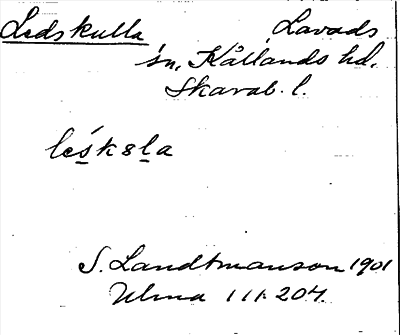 Ledskulla Lavads
sn, Kållands hd.
Skarab. l.
S. Landtmanson 1901
Ulma 111.204.